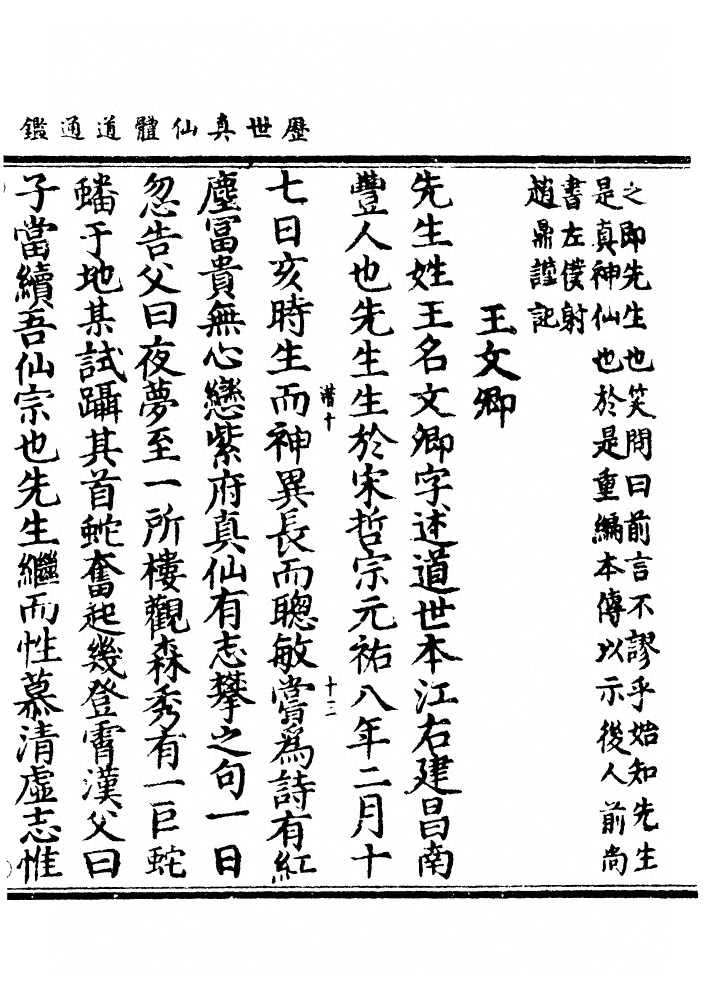 歷世真仙體道通鑑
之即先生也笑問曰前言不謬乎始知先生
是真神仙也於是重編本傳以示後人前尚
書左僕射
趙鼎謹記
王文卿
先生姓王名文卿字述道世本江右建昌南
豐人也先生生於宋哲宗元祐八年二月十
譜十
十三
七日亥時生而神異長而聰敏嘗為詩有紅
塵冨貴無心戀紫府真仙有志攀之句一日
忽告父曰夜夢至一所樓觀森秀有一巨蛇
蟠于地某試躡其首蛇奮起幾登霄漢父曰
子當續吾仙宗也先生繼而性慕清虛志惟